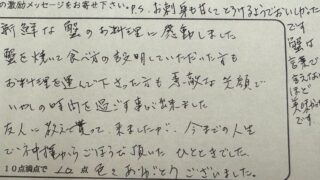 の激励メッセージをお寄せ下さい。P.S. お刺身も甘くてとろけるようでおいしかったです
新鮮な蟹のお料理に感動しました
蟹を焼いて食べ方の説明していただいた方も
お料理を運んで下さった方も素敵な笑顔で
いやしの時間を過ごす事が出来ました
友人に教えて貰って、来ましたが、今までの人生
で神様からごほうび頂いたひとときでした
10点満点で 10点 色々ありがとうございました。
蟹は
言葉で
言えない
ほど
美味かった
です